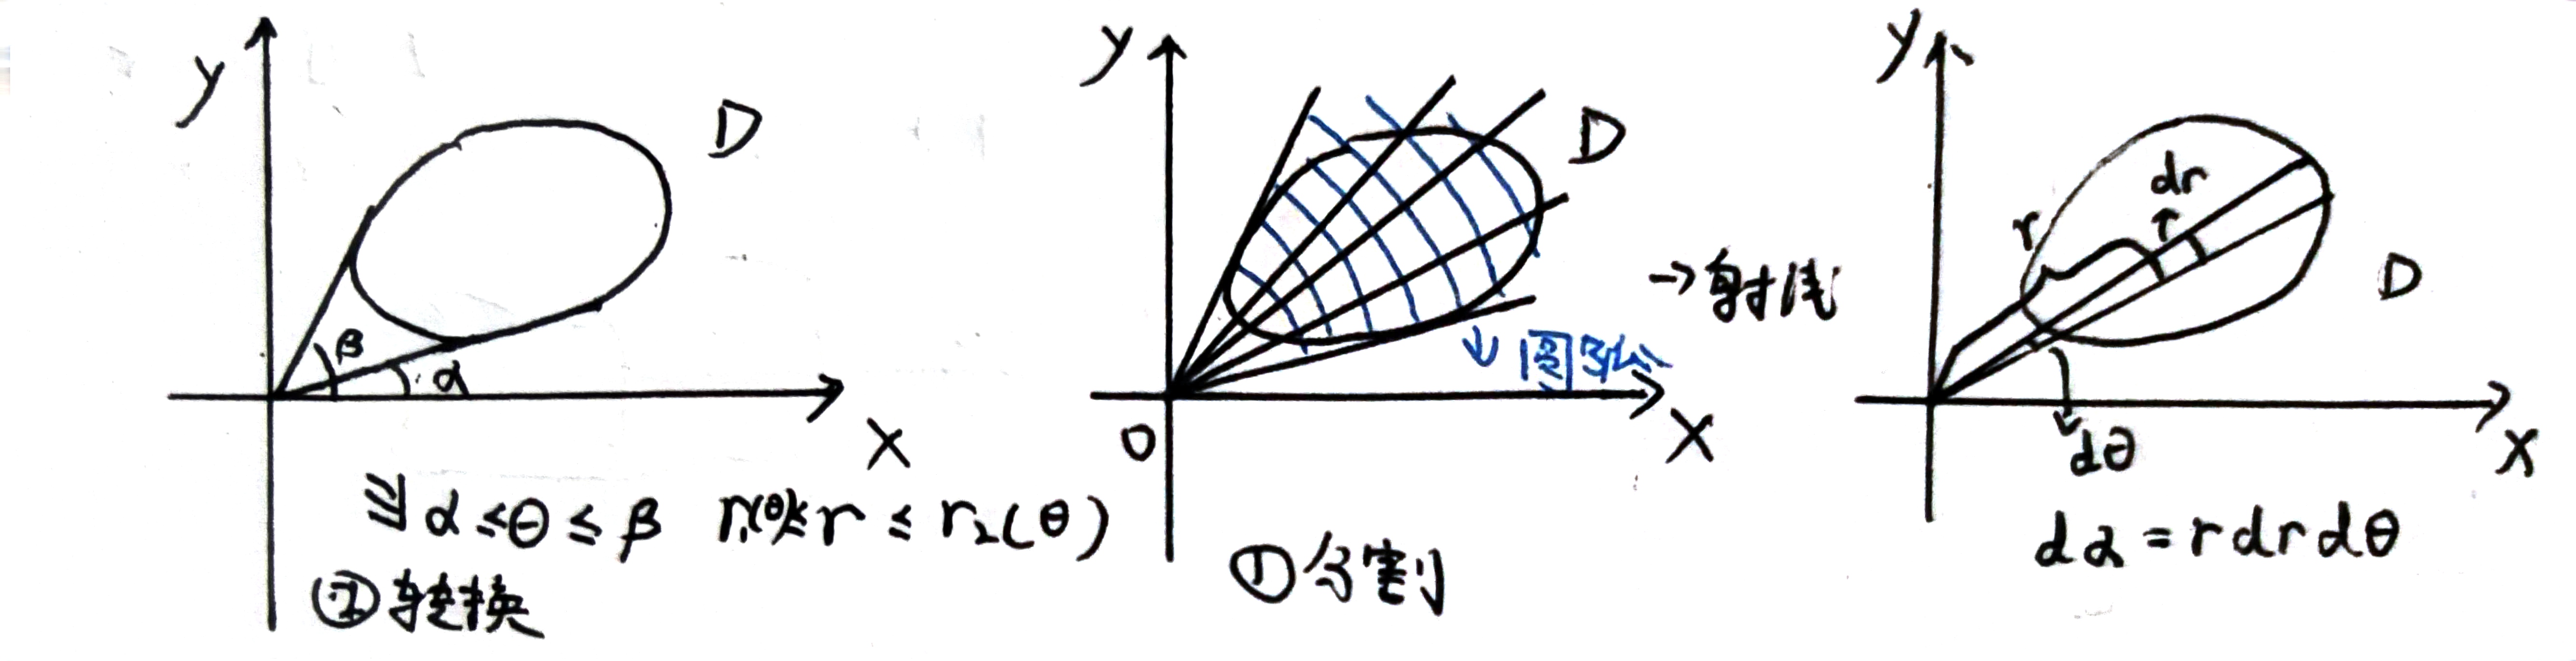 y
D
β
α
x
α ≤ θ ≤ β r₁(θ) ≤ r ≤ r₂(θ)
②转换
y
D
→射线
↓圆弧
O
x
①分割
y
r
dr
D
dθ
x
dα = r dr dθ